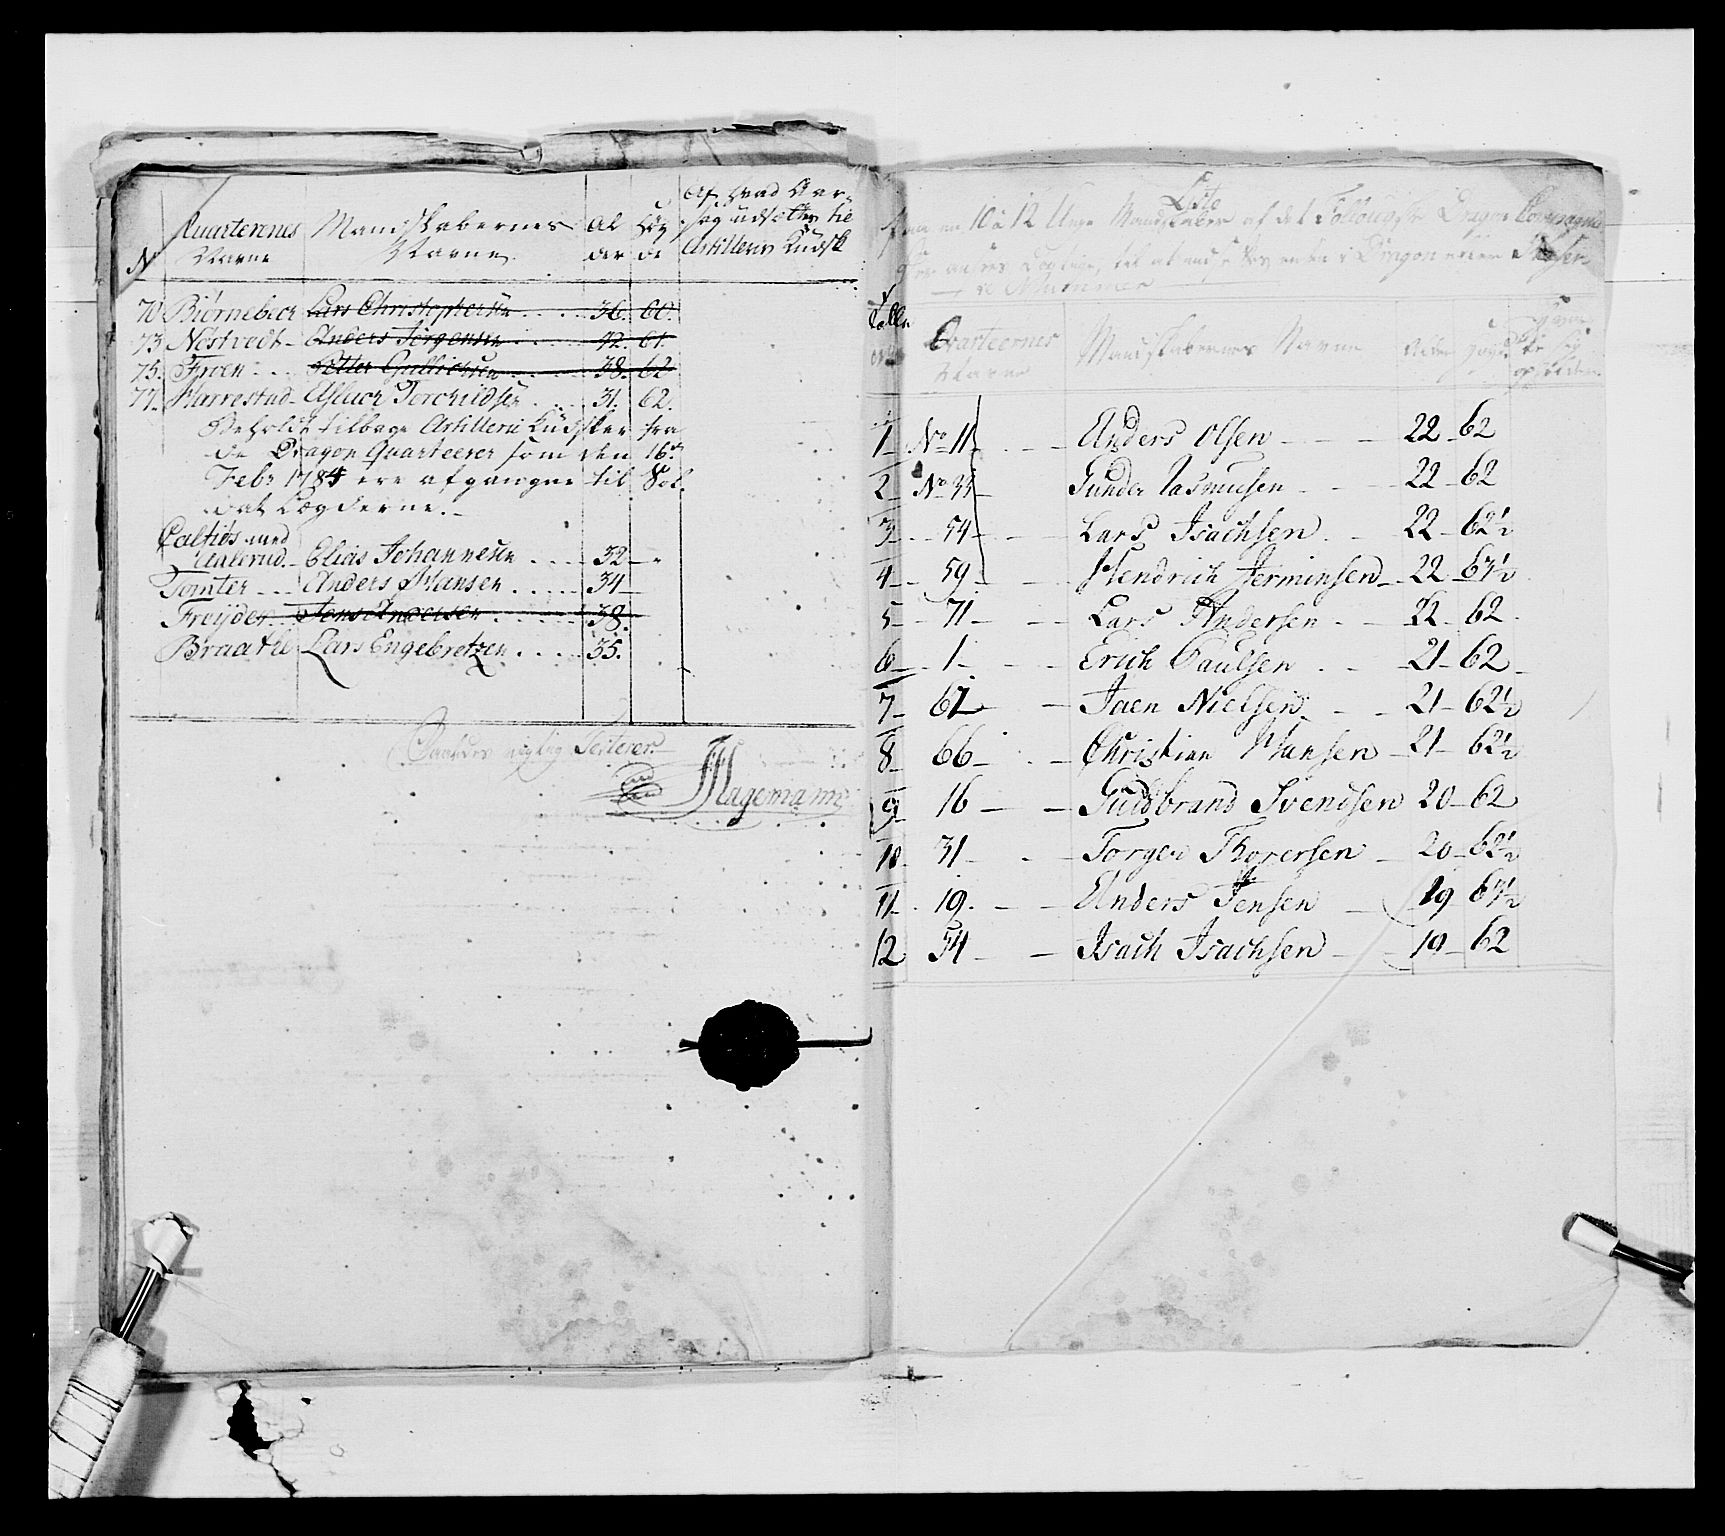 N Quarterenes Navne Mandskabernes Navne Al der Høy de Af hvad Aar- sag udsættes til Artillerie Kudsk
70 Biørnebeck Lars Christophersen 36. 60.
73 Nøstvedt Anders Jørgensen 42. 61.
75. Froen Petter Gullichsen 38. 62
77. Harrestad Aslach Torchildsen 31. 62.
Beholdt tilbage Artillerie Kudsker fra
de Dragon Quarteerer som den 16de
Febr 1784 ere afgangne til Sol
dat Lægderne.
Paltiøs med
Aalerud Elias Johannesen 32
Tomter Anders Hansen 34
Freyder Jens Andersen 38.
Braathe Lars Engebretzen 35.
rigtig
Hagemann
Liste
paa en 10 à 12 Unge Mandskaber af det Follougske Dragon Compagnie
Nummer
Qvarteernes Navne Mandskabernes Navne Alder
1 No 11 Anders Olsen 22 62
2 No 33 Gunder Rasmusen 22 62
3 54 Lars Isachsen 22 62½
4 59 Hendrich Jerminsen 22 63½
5 71 Lars Andersen 22 62
6 1 Erich Paulsen 21 62
7 61 Jaen Nielsen 21 62½
8 66 Christian Hansen 21 62½
9 16 Guldbrand Svendsen 20 62
10 31 Torger Thorersen 20 62½
11 19 Anders Jensen 19 63½
12 54 Isach Isachsen 19 62